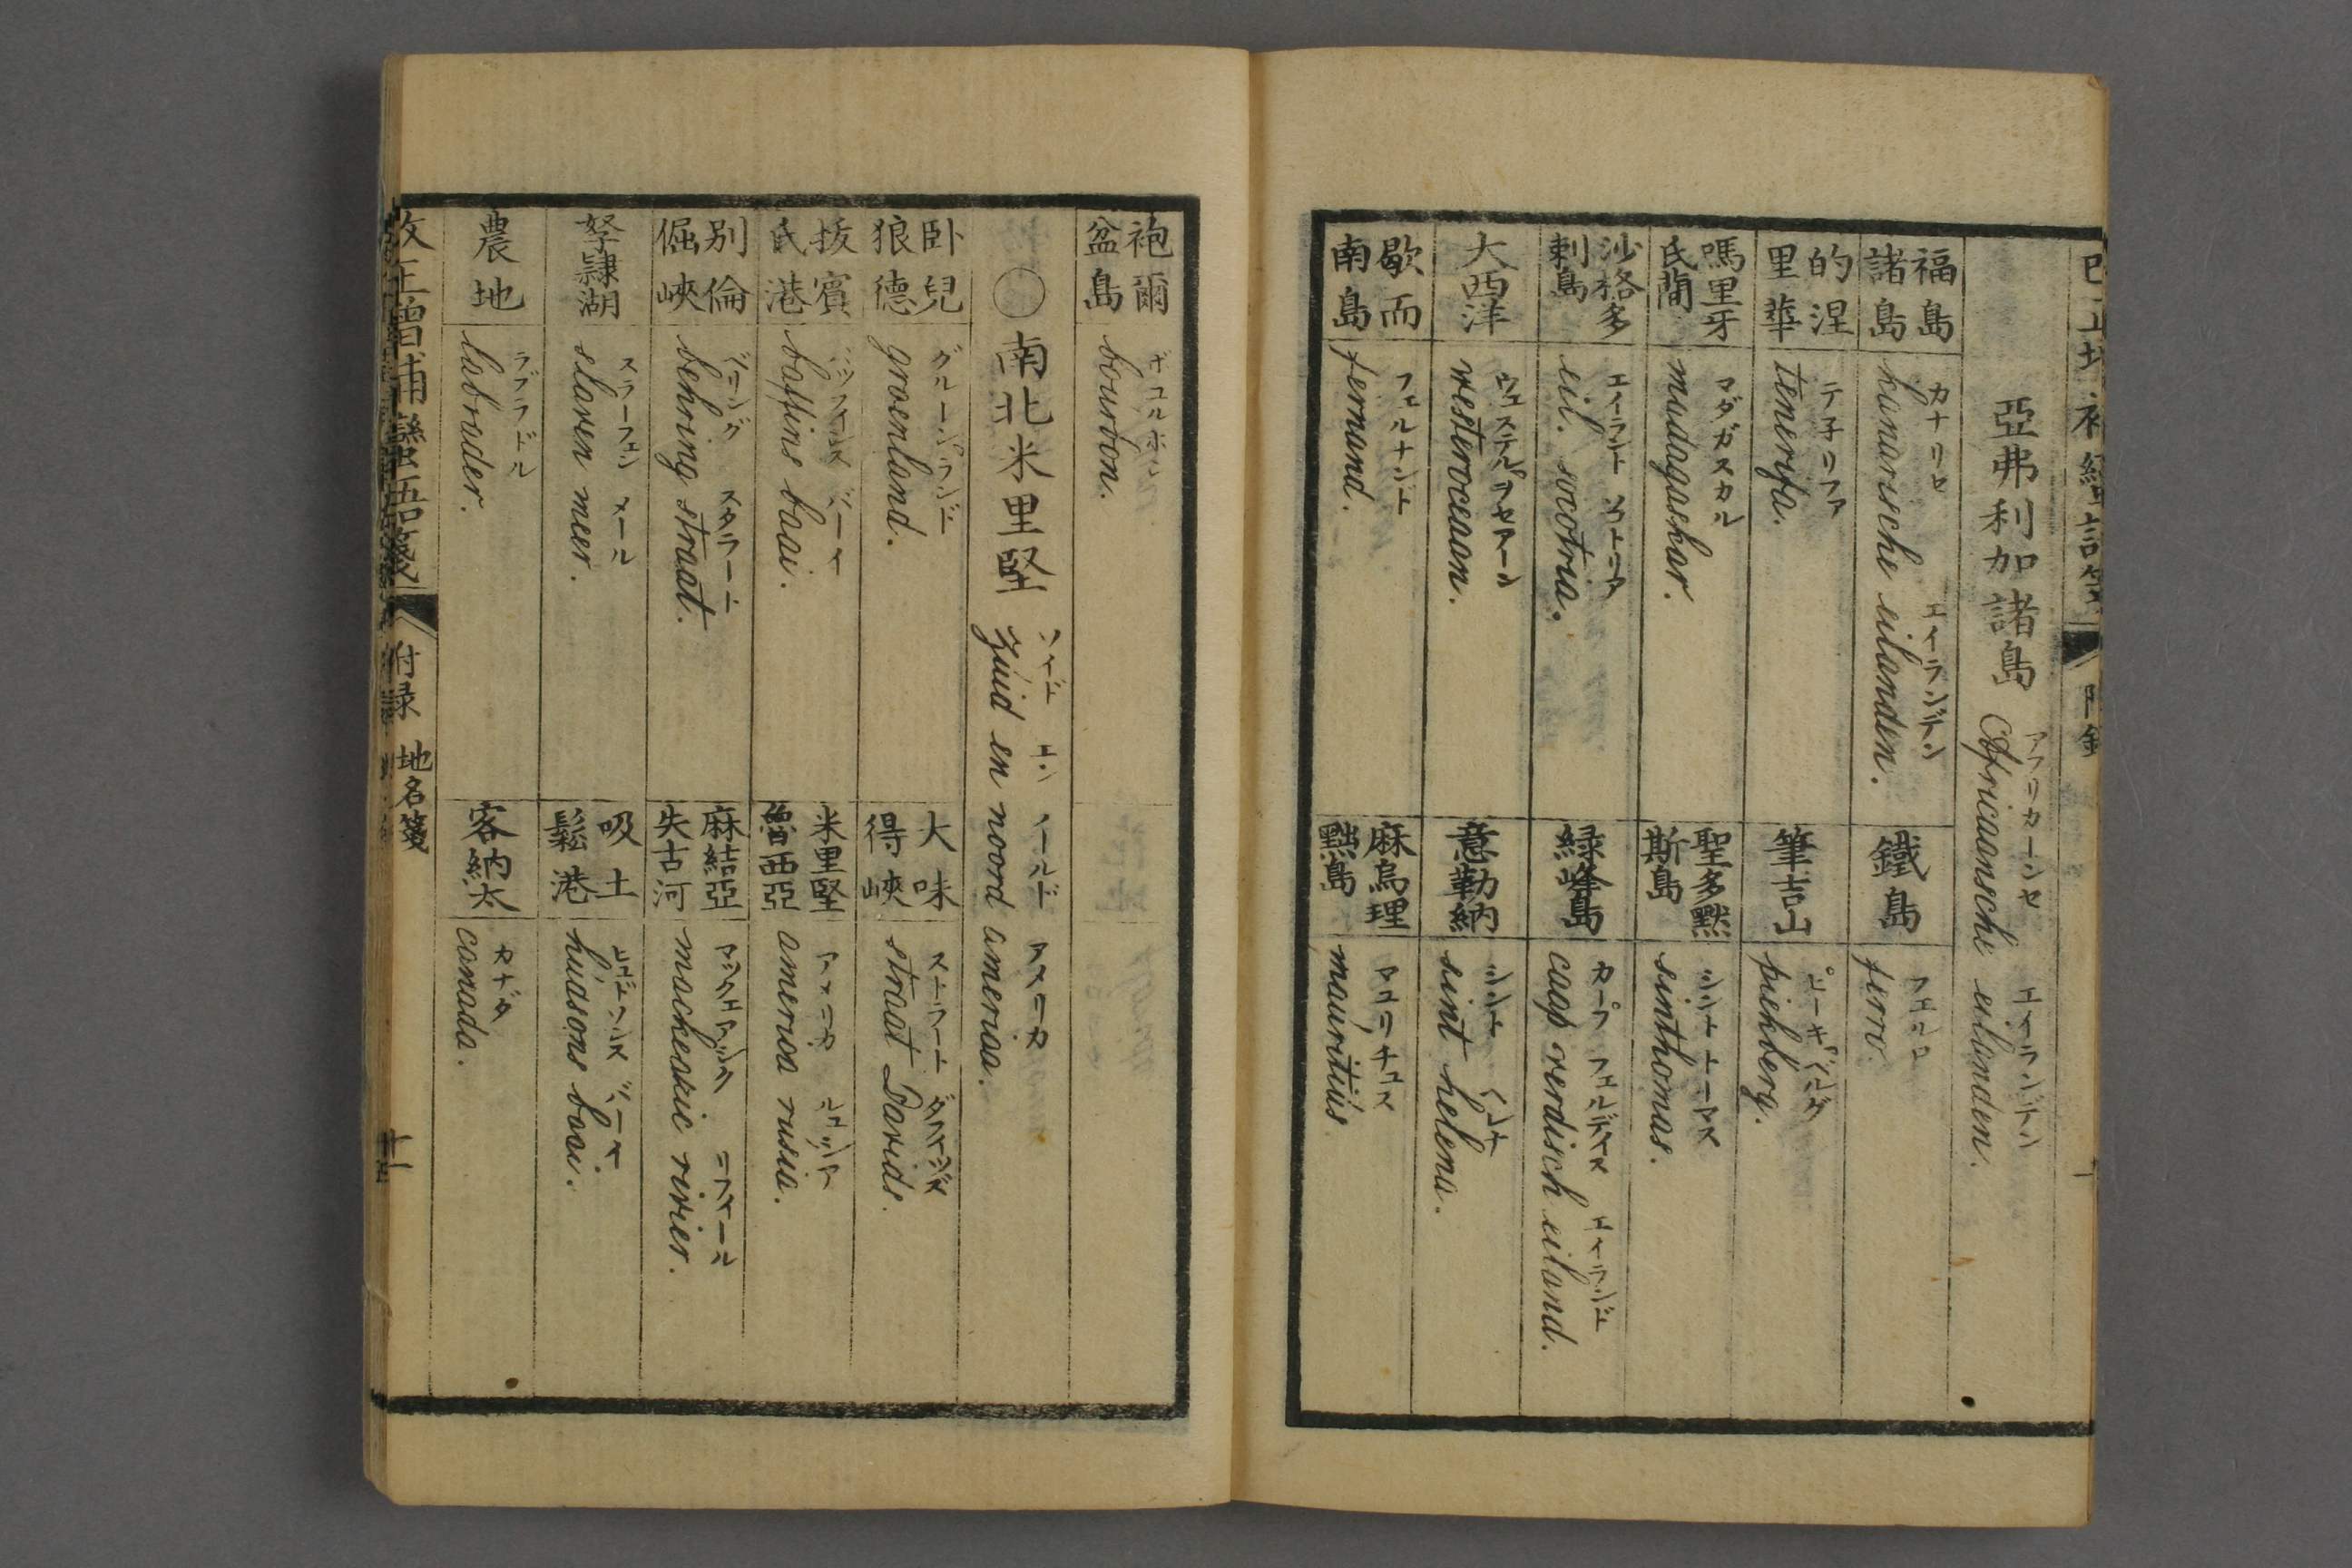 亞弗利加諸島
アフリカーンセ エイランデン
Africaansche eilanden.
福島諸島
カナリセ エイランデン
kanarische eilanden.
鐵島
フエルロ
ferro.
的涅里華
テ子リファ
tenerifa.
筆吉山
ピーキベルグ
piekberg.
嗎里牙氏蘭
マダガスカル
madagaskar.
聖多黙斯島
シントトーマス
sinthomas.
沙格多剌島
エイラント ソコトリア
eil. socotria.
緑峰島
カープ フェルディス エイランド
caap verdisch eiland.
大西洋
ウェステルヲセアーン
westeroceaan.
意勒納
シント ヘレナ
sint helena.
歇而南島
フェルナンド
fernand.
麻烏理黙島
マユリチュス
mauritius.
袍爾盆島
bourbon.
〇南北米里堅
ソイド エン ノールド アメリカ
zuid en noord america.
卧兒狼德
グルーンランド
groenland.
大味得峽
ストラート ダフィッヅ
straat Davids.
拔賓氏港
バッフインス バーイ
baffins baai.
米里堅魯西亞
アメリカ ルュッシア
america rusia.
別倫倔峽
ベリング スタラート
behring straat.
麻結亞失古河
リフィール
mackeakic rivier.
孥隷湖
スラーフェン メール
slaven meer.
吸土鬆港
ヒュドソンス バーイ
hudsons baai.
農地
ラブラドル
labrader.
客納太
カナダ
canada.
改正增補蠻語箋
附録 地名箋
十一